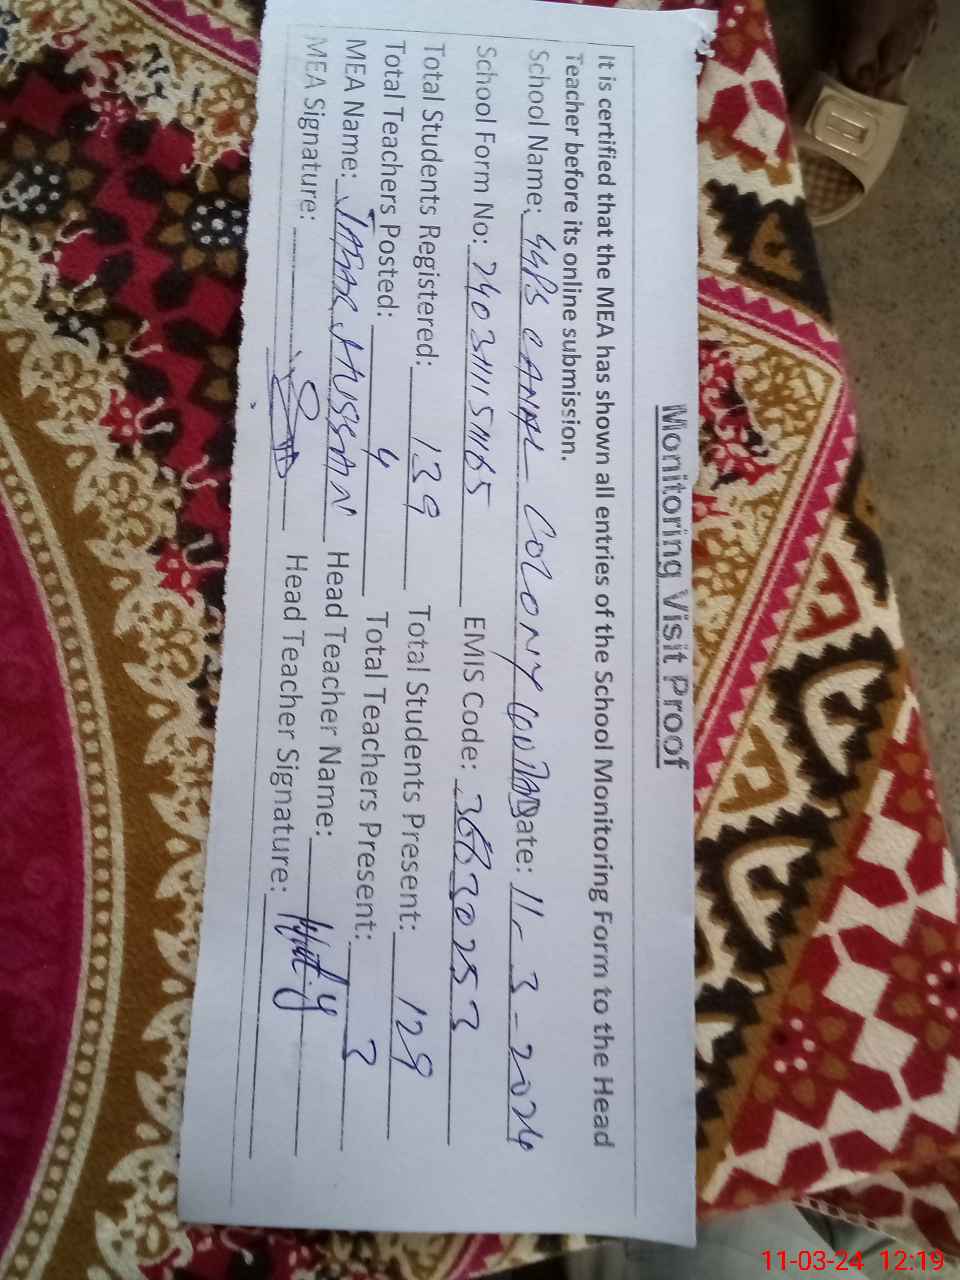 Monitoring Visit Proof
It is certified that the MEA has shown all entries of the School Monitoring Form to the Head
Teacher before its online submission.
School Name: GGPS CANAL COLONY Date: 11-3-2024
School Form No: 2403111511165 EMIS Code: 36630253
Total Students Registered: 139 Total Students Present: 129
Total Teachers Posted: 4 Total Teachers Present: 3
MEA Name: HUSSAN Head Teacher Name:
MEA Signature: Head Teacher Signature:
11-03-24 12:19